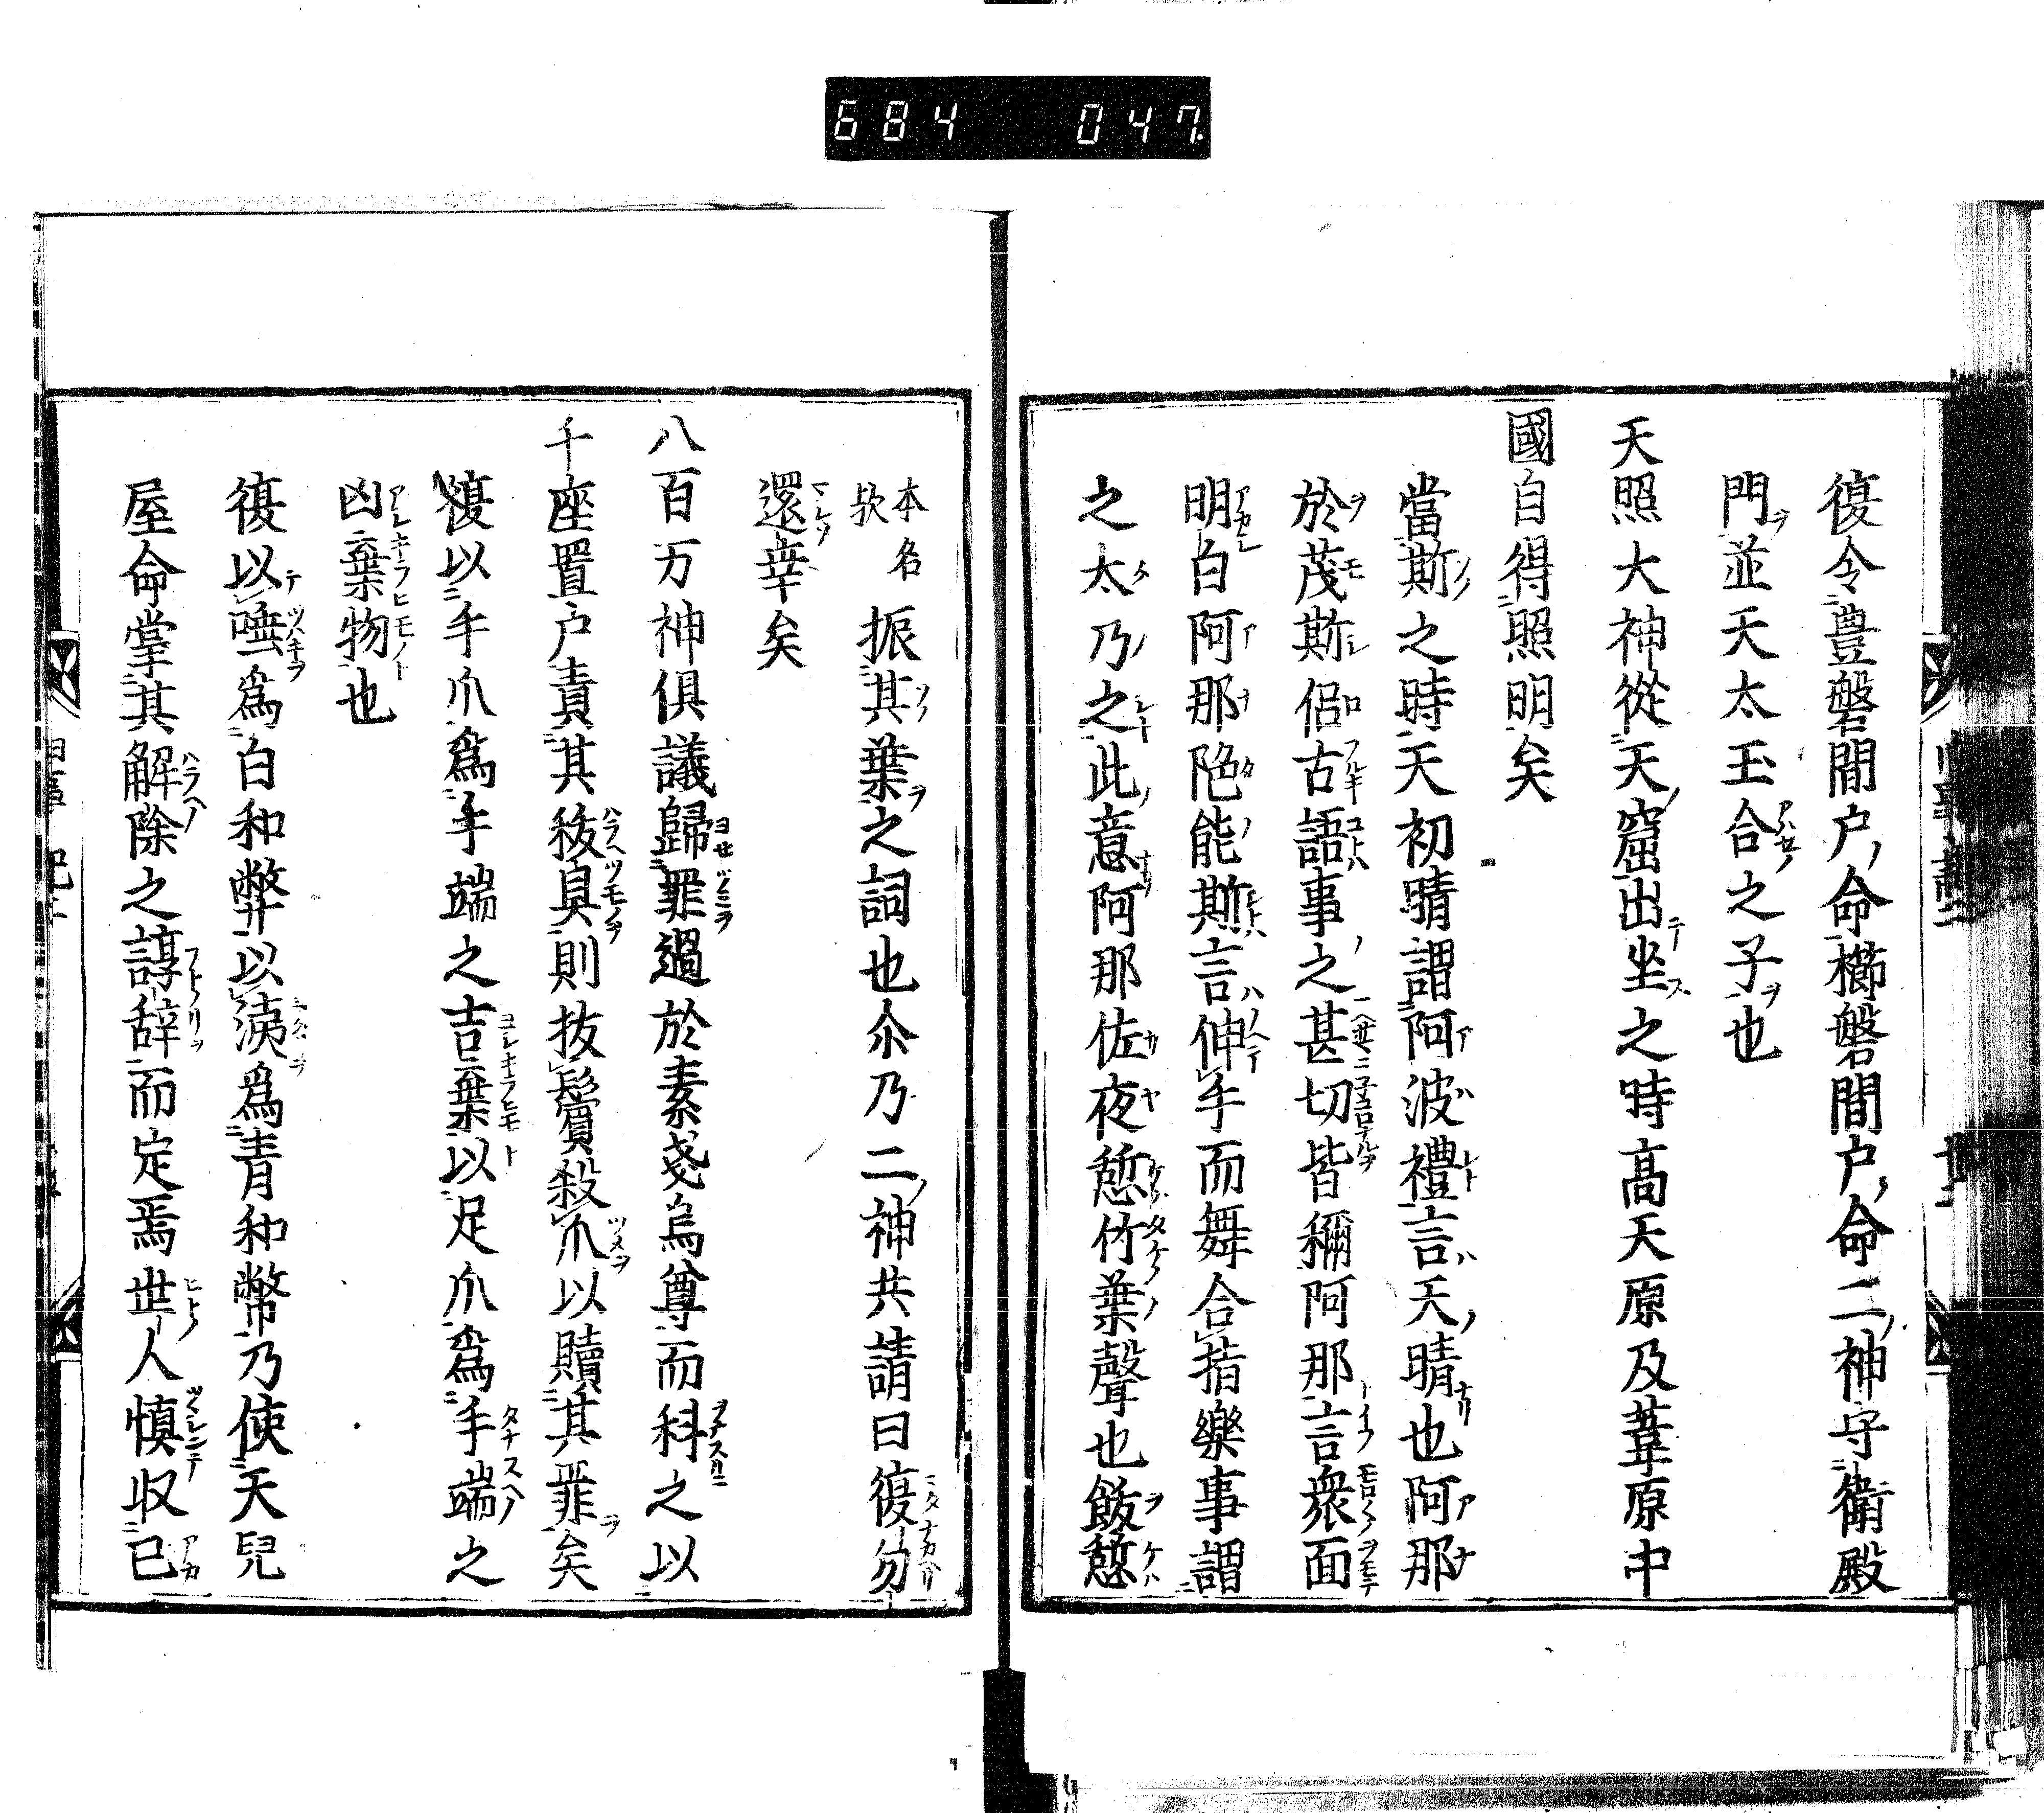 684 047
復令豊磐間戸命櫛磐間戸命二神守衛殿
門並天太玉合之子也
天照大神從天窟出坐之時髙天原及葦原中
國自得照明矣
當斯之時天初晴謂阿波禮言天晴也阿那
於茂斯侶古語事之甚切皆稱阿那言衆面
明白阿那陁能斯言伸手而舞合指樂事謂
之太乃之此意阿那佐夜憩竹葉聲也飯憩
本名
欤
振其葉之詞也尒乃二神共請曰復勿
還幸矣
八百万神俱議歸罪過於素戔烏尊而科之以
千座置户責其秡具則抜鬚殺爪以贖其罪矣
復以手爪爲手端之吉棄以足爪爲手端之
凶棄物也
復以唾爲白和弊以洟爲青和幣乃使天兒
屋命掌其解除之諄辞而定焉世人慎収己